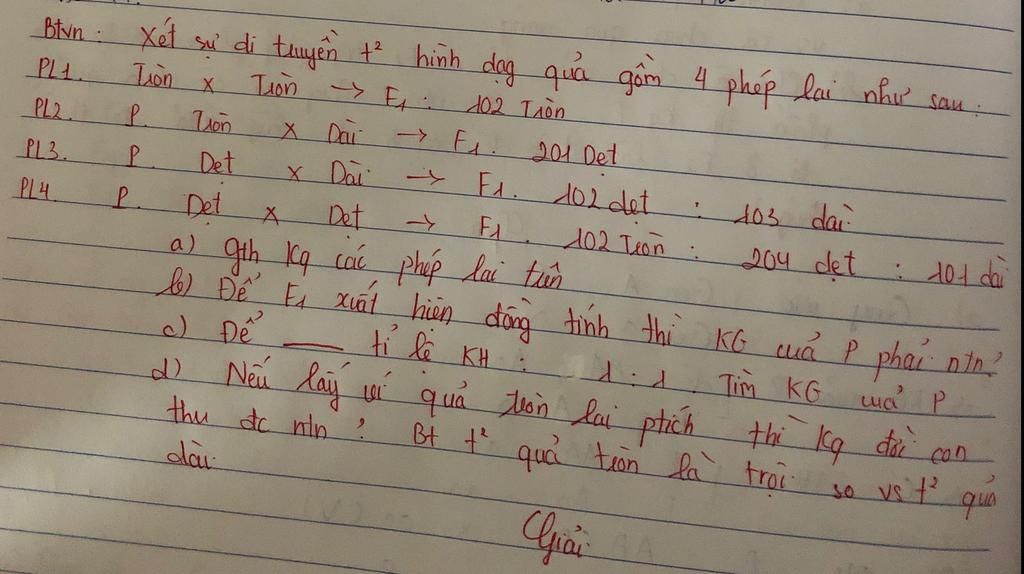 Btvn: Xét sự di truyền t² hình dạng quả gồm 4 phép lai như sau:
PL1. Tròn x Tròn → F1: 102 Tròn
PL2. P. Tròn x Dài → F1: 201 Dẹt
PL3. P. Dẹt x Dài → F1. 102 dẹt : 103 dài
PL4. P. Dẹt x Dẹt → F1. 102 Tròn : 204 dẹt : 101 dài
a) gth Kq các phép lai trên
b) Để F1 xuất hiện đồng tính thì KG của P phải ntn?
c) Để —— tỉ lệ KH: 1:1. Tìm KG của P
d) Nếu lấy quả tròn lai ptích thì Kq đời con
thu đc ntn? Bt t² quả tròn là trội so vs t² quả
dài.
Giải